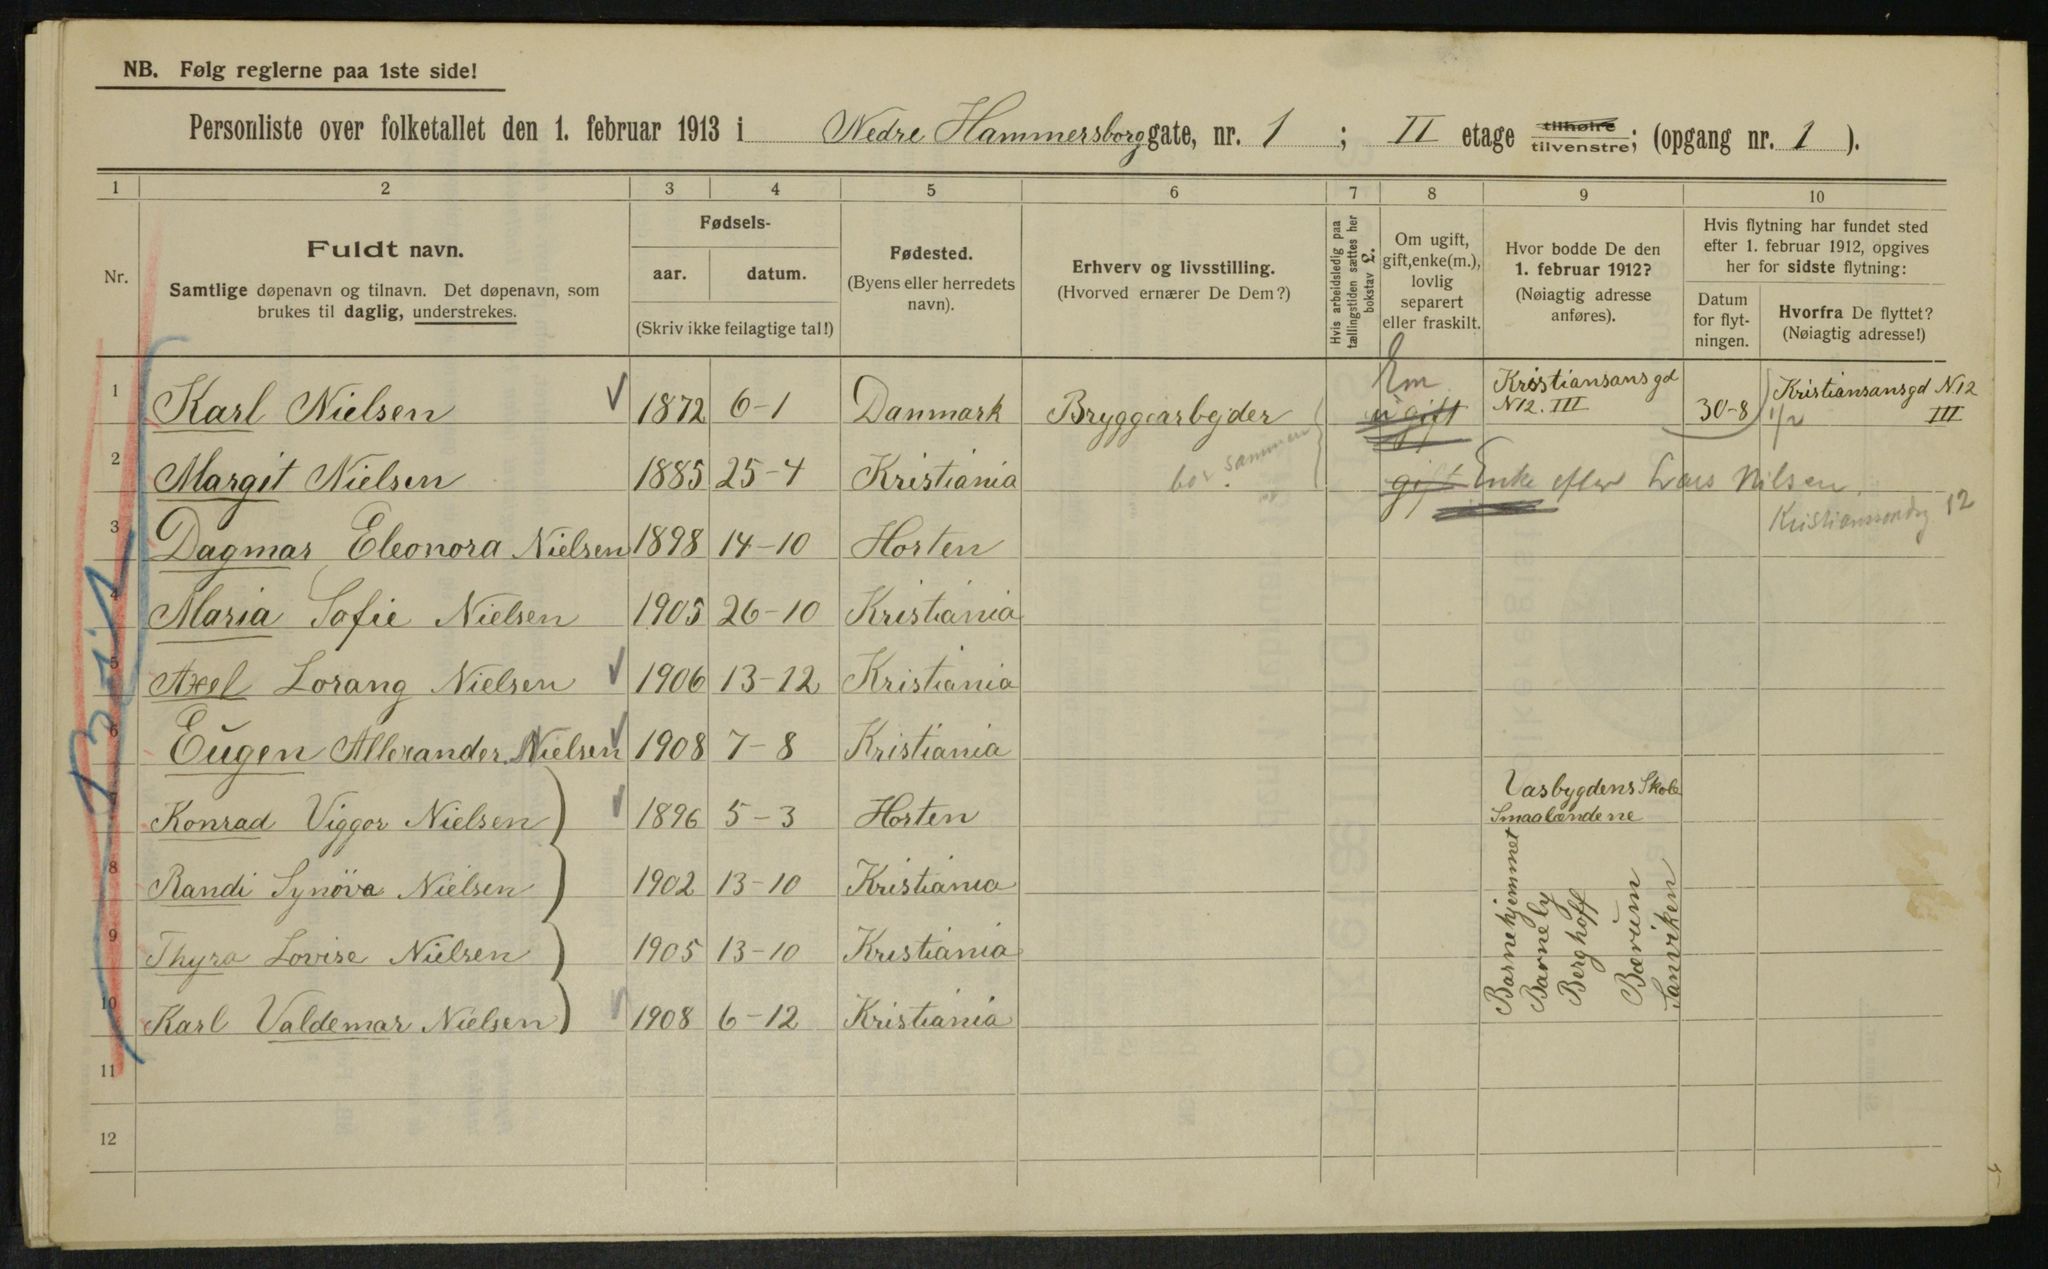 NB. Følg reglerne paa 1ste side!
Personliste over folketallet den 1. februar 1913 i Nedre Hammersborggate, nr. 1 ; II etage tilhøire tilvenstre; (opgang nr. 1 ).
1 2 3 4 5 6 7 8 9 10
Nr.
Fuldt navn.
Samtlige døpenavn og tilnavn. Det døpenavn, som
brukes til daglig, understrekes.
Fødsels-
aar. datum.
(Skriv ikke feilagtige tal!)
Fødested.
(Byens eller herredets
navn).
Erhverv og livsstilling.
(Hvorved ernærer De Dem?)
Hvis arbeidsledig paa
tællingstiden sættes her
bokstav L.
Om ugift,
gift, enke(m.),
lovlig
separert
eller fraskilt.
Hvor bodde De den
1. februar 1912?
(Nøiagtig adresse
anføres).
Hvis flytning har fundet sted
efter 1. februar 1912, opgives
her for sidste flytning:
Datum
for flyt-
ningen.
Hvorfra De flyttet?
(Nøiagtig adresse!)
1 Karl Nielsen 1872 6-1 Danmark Bryggearbejder ugift Em Kristiansansgd N12. III 30-8 Kristiansansgd N12 III 1/2
2 Margit Nielsen 1885 25-4 Kristiania bor sammen gift Enke efter Lars Nilsen.
3 Dagmar Eleonora Nielsen 1898 14-10 Horten 12
4 Maria Sofie Nielsen 1905 26-10 Kristiania
5 Axel Lorang Nielsen 1906 13-12 Kristiania
6 Eugen Allexander Nielsen 1908 7-8 Kristiania
7 Konrad Viggor Nielsen 1896 5-3 Horten Vasbygdens Skole
Smaalændene
8 Randi Synöva Nielsen 1902 13-10 Kristiania
9 Thyra Lovise Nielsen 1905 13-10 Kristiania
10 Karl Valdemar Nielsen 1908 6-12 Kristiania
Barnehjemmet
Barneby
Berghoff
Bærium
Sanviken
11
12